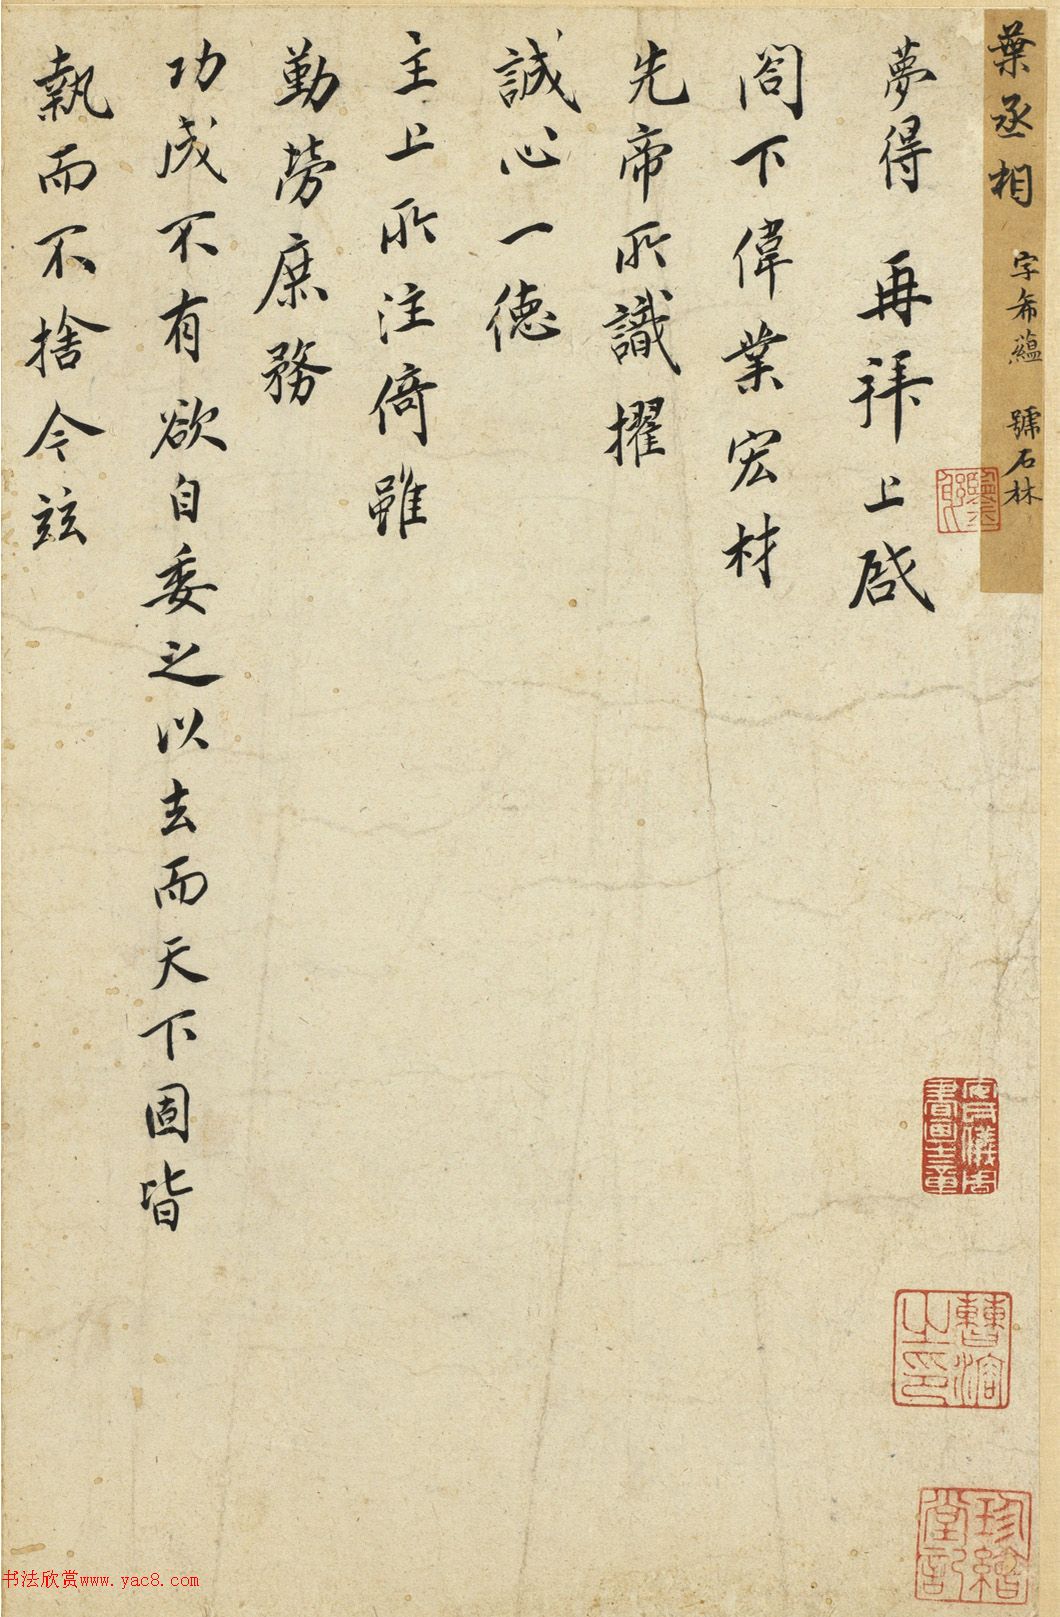 葉丞相 字希蘊 號石林
夢得 再拜上啟
閤下偉業宏材
先帝所識擢
誠心一德
主上所注倚雖
勤勞庶務
功成不有欲自委之以去而天下固皆
執而不捨令茲
安儀周書畫之章
曹溶之印
珍繪堂記
书法欣赏www.yac8.com